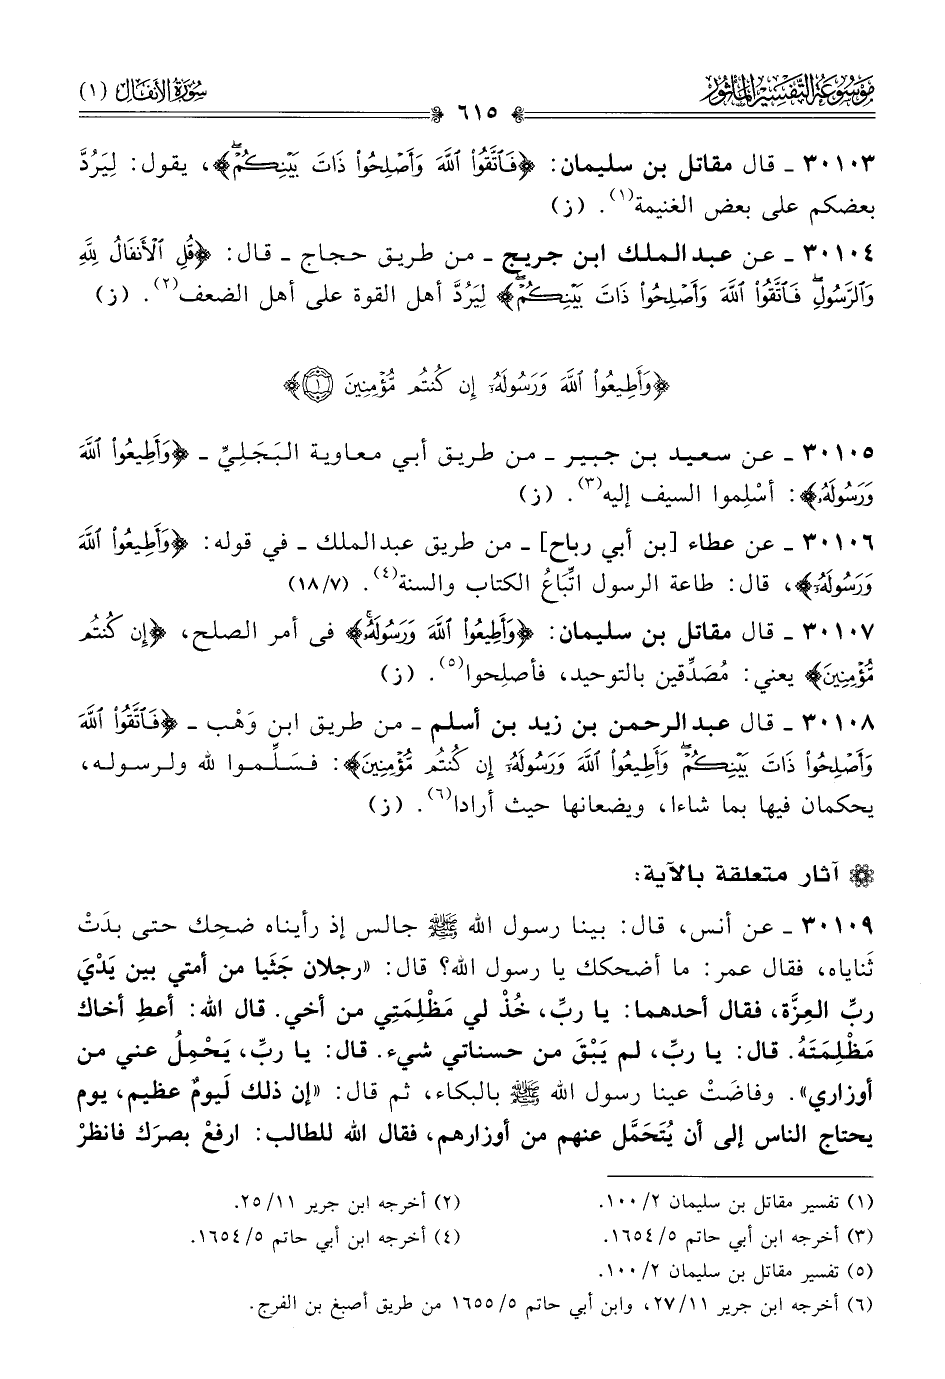 مَوْسُوعَة التَّفْسِير المَأْثُور
سُورَةُ الأَنفَال (١)
٦١٥
٣٠١٠٣ ـ قال مقاتل بن سليمان: ﴿فَٱتَّقُوا۟ ٱللَّهَ وَأَصْلِحُوا۟ ذَاتَ بَيْنِكُمْۖ﴾، يقول: لِيَرُدَّ
بعضكم على بعض الغنيمة(١). (ز)
٣٠١٠٤ ـ عن عبدالملك ابن جريج ـ من طريق حجاج ـ قال: ﴿قُلِ ٱلْأَنفَالُ لِلَّهِ
وَٱلرَّسُولِۖ فَٱتَّقُوا۟ ٱللَّهَ وَأَصْلِحُوا۟ ذَاتَ بَيْنِكُمْۖ﴾ لِيَرُدَّ أهل القوة على أهل الضعف(٢). (ز)
﴿وَأَطِيعُوا۟ ٱللَّهَ وَرَسُولَهُۥٓ إِن كُنتُم مُّؤْمِنِينَ ١﴾
٣٠١٠٥ ـ عن سعيد بن جبير ـ من طريق أبي معاوية البَجَلِيِّ ـ ﴿وَأَطِيعُوا۟ ٱللَّهَ
وَرَسُولَهُۥٓ﴾: أسْلِموا السيف إليه(٣). (ز)
٣٠١٠٦ ـ عن عطاء [بن أبي رباح] ـ من طريق عبدالملك ـ في قوله: ﴿وَأَطِيعُوا۟ ٱللَّهَ
وَرَسُولَهُۥٓ﴾، قال: طاعة الرسول اتِّبَاعُ الكتاب والسنة(٤). (١٨/٧)
٣٠١٠٧ ـ قال مقاتل بن سليمان: ﴿وَأَطِيعُوا۟ ٱللَّهَ وَرَسُولَهُۥٓ﴾ فى أمر الصلح، ﴿إِن كُنتُم
مُّؤْمِنِينَ﴾ يعني: مُصَدِّقين بالتوحيد، فأصلِحوا(٥). (ز)
٣٠١٠٨ ـ قال عبدالرحمن بن زيد بن أسلم ـ من طريق ابن وَهْب ـ ﴿فَٱتَّقُوا۟ ٱللَّهَ
وَأَصْلِحُوا۟ ذَاتَ بَيْنِكُمْۖ وَأَطِيعُوا۟ ٱللَّهَ وَرَسُولَهُۥٓ إِن كُنتُم مُّؤْمِنِينَ﴾: فسَلِّموا لله ولرسوله،
يحكمان فيها بما شاءا، ويضعانها حيث أرادا(٦). (ز)
آثار متعلقة بالآية:
٣٠١٠٩ ـ عن أنس، قال: بينا رسول الله ﷺ جالس إذ رأيناه ضحِك حتى بدَتْ
ثَناياه، فقال عمر: ما أضحكك يا رسول الله؟ قال: «رجلان جَثَيا من أمتي بين يَدْيَ
ربِّ العِزَّة، فقال أحدهما: يا ربِّ، خُذْ لي مَظْلِمَتِي من أخي. قال الله: أعطِ أخاك
مَظْلِمَتَهُ. قال: يا ربِّ، لم يَبْقَ من حسناتي شيء. قال: يا ربِّ، يَحْمِلُ عني من
أوزاري». وفاضَتْ عينا رسول الله ﷺ بالبكاء، ثم قال: «إن ذلك لَيومٌ عظيم، يوم
يحتاج الناس إلى أن يُتَحَمَّل عنهم من أوزارهم، فقال الله للطالب: ارفعْ بصرَك فانظرْ
(١) تفسير مقاتل بن سليمان ١٠٠/٢.
(٢) أخرجه ابن جرير ٢٥/١١.
(٣) أخرجه ابن أبي حاتم ١٦٥٤/٥.
(٤) أخرجه ابن أبي حاتم ١٦٥٤/٥.
(٥) تفسير مقاتل بن سليمان ١٠٠/٢.
(٦) أخرجه ابن جرير ٢٧/١١، وابن أبي حاتم ١٦٥٥/٥ من طريق أصبغ بن الفرج.